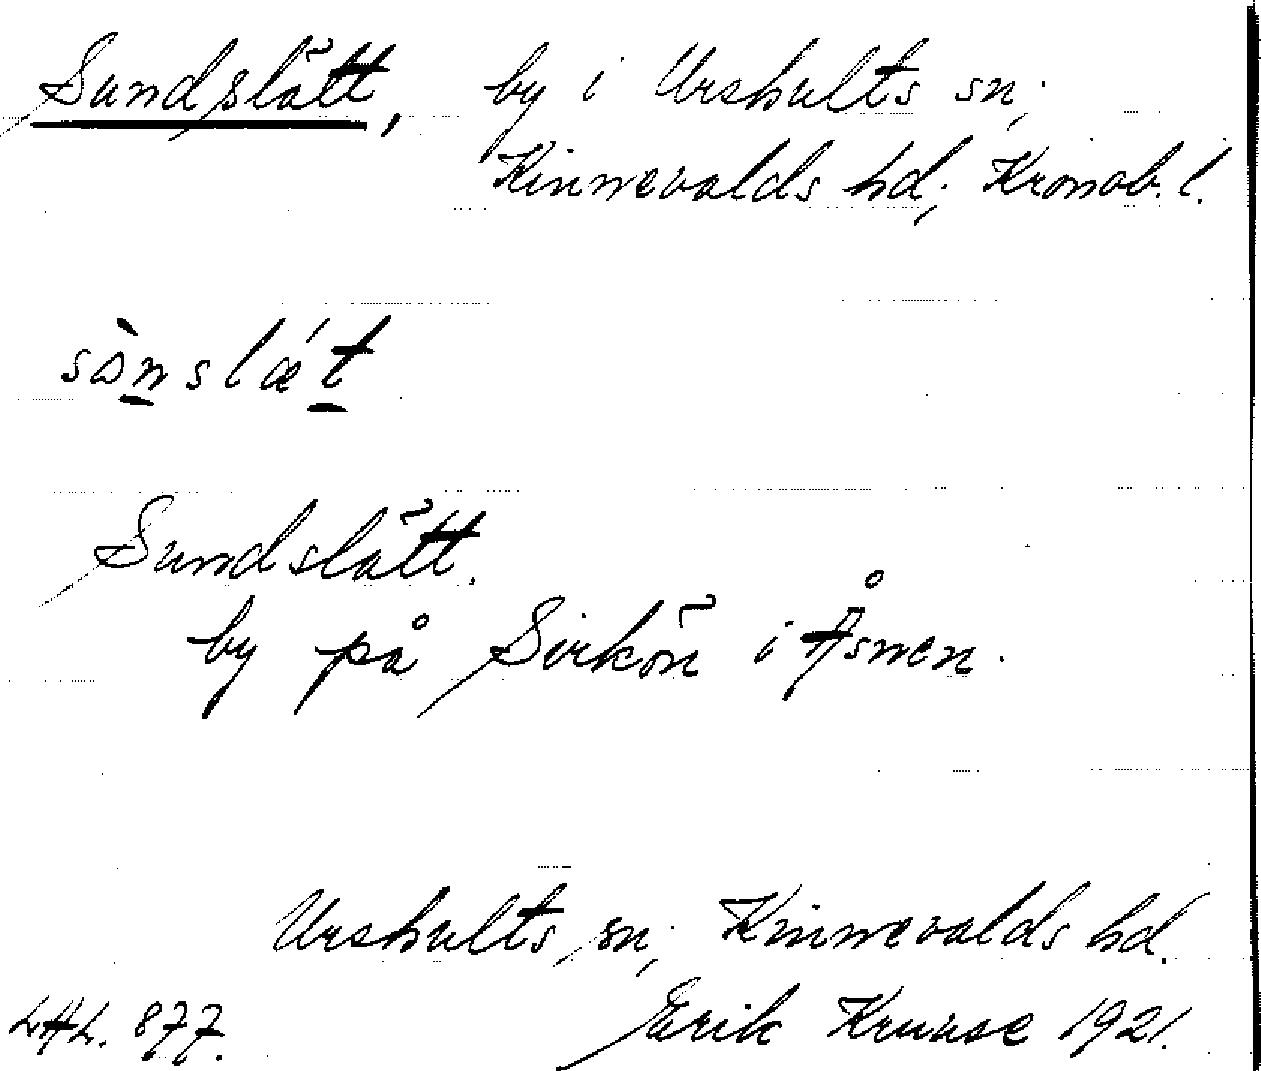 Sundslätt, by i Urshults sn;
Kinnevalds hd; Kronob. l.
sònslǽt
Sundslätt.
by på Sirkön i Åsnen.
Urshults sn; Kinnevalds hd.
LAL. 877. Erik Kruuse 1921.